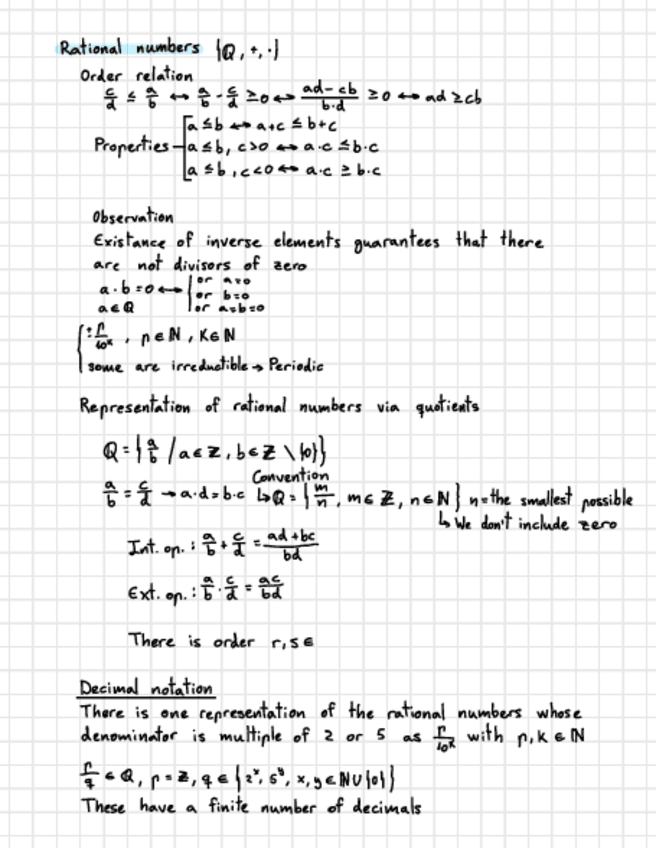 Rational numbers {Q, +, ·}
Order relation
c/d ≤ a/b ↔ a/b - c/d ≥0 ↔ ad-cb/b·d ≥0 ↔ ad ≥ cb
a≤b ↔ a+c ≤ b+c
Properties a≤b, c>0 ↔ a·c ≤ b·c
a≤b, c<0 ↔ a·c ≥ b·c
Observation
Existance of inverse elements guarantees that there
are not divisors of zero
a·b=0 ↔ or a=0
or b=0
a∈Q or a=b=0
p/10ᵏ, p∈N, K∈N
some are irreductible → Periodic
Representation of rational numbers via quotients
Q={a/b /a∈Z, b∈Z \{0}}
Convention
a/b = c/d → a·d=b·c ↳ Q={m/n, m∈Z, n∈N} n=the smallest possible
↳ We don't include zero
Int. op.: a/b + c/d = ad+bc/bd
Ext. op.: a/b · c/d = ac/bd
There is order r,s∈
Decimal notation
There is one representation of the rational numbers whose
denominator is multiple of 2 or 5 as p/10ᵏ with p,k∈N
p/q ∈Q, p=Z, q∈{2ˣ, 5ʸ, x,y∈N∪{0}}
These have a finite number of decimals